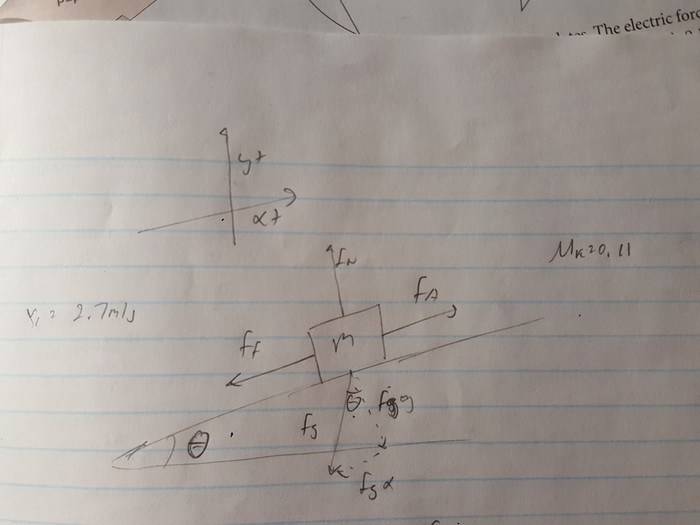 The electric forc
y+
x+
fN
μk=0.11
fA
v₁= 2.7m/s
ff
m
θ
θ
fgy
fg
fgx